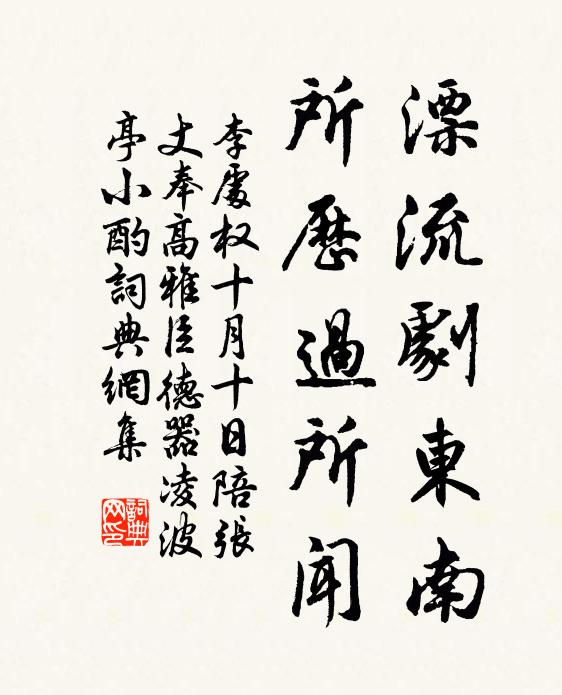 漂流劇東南
所歷過所聞
李處权十月十日陪張
丈奉高雅臣德器凌波
亭小酌詞典網集
詞典网印